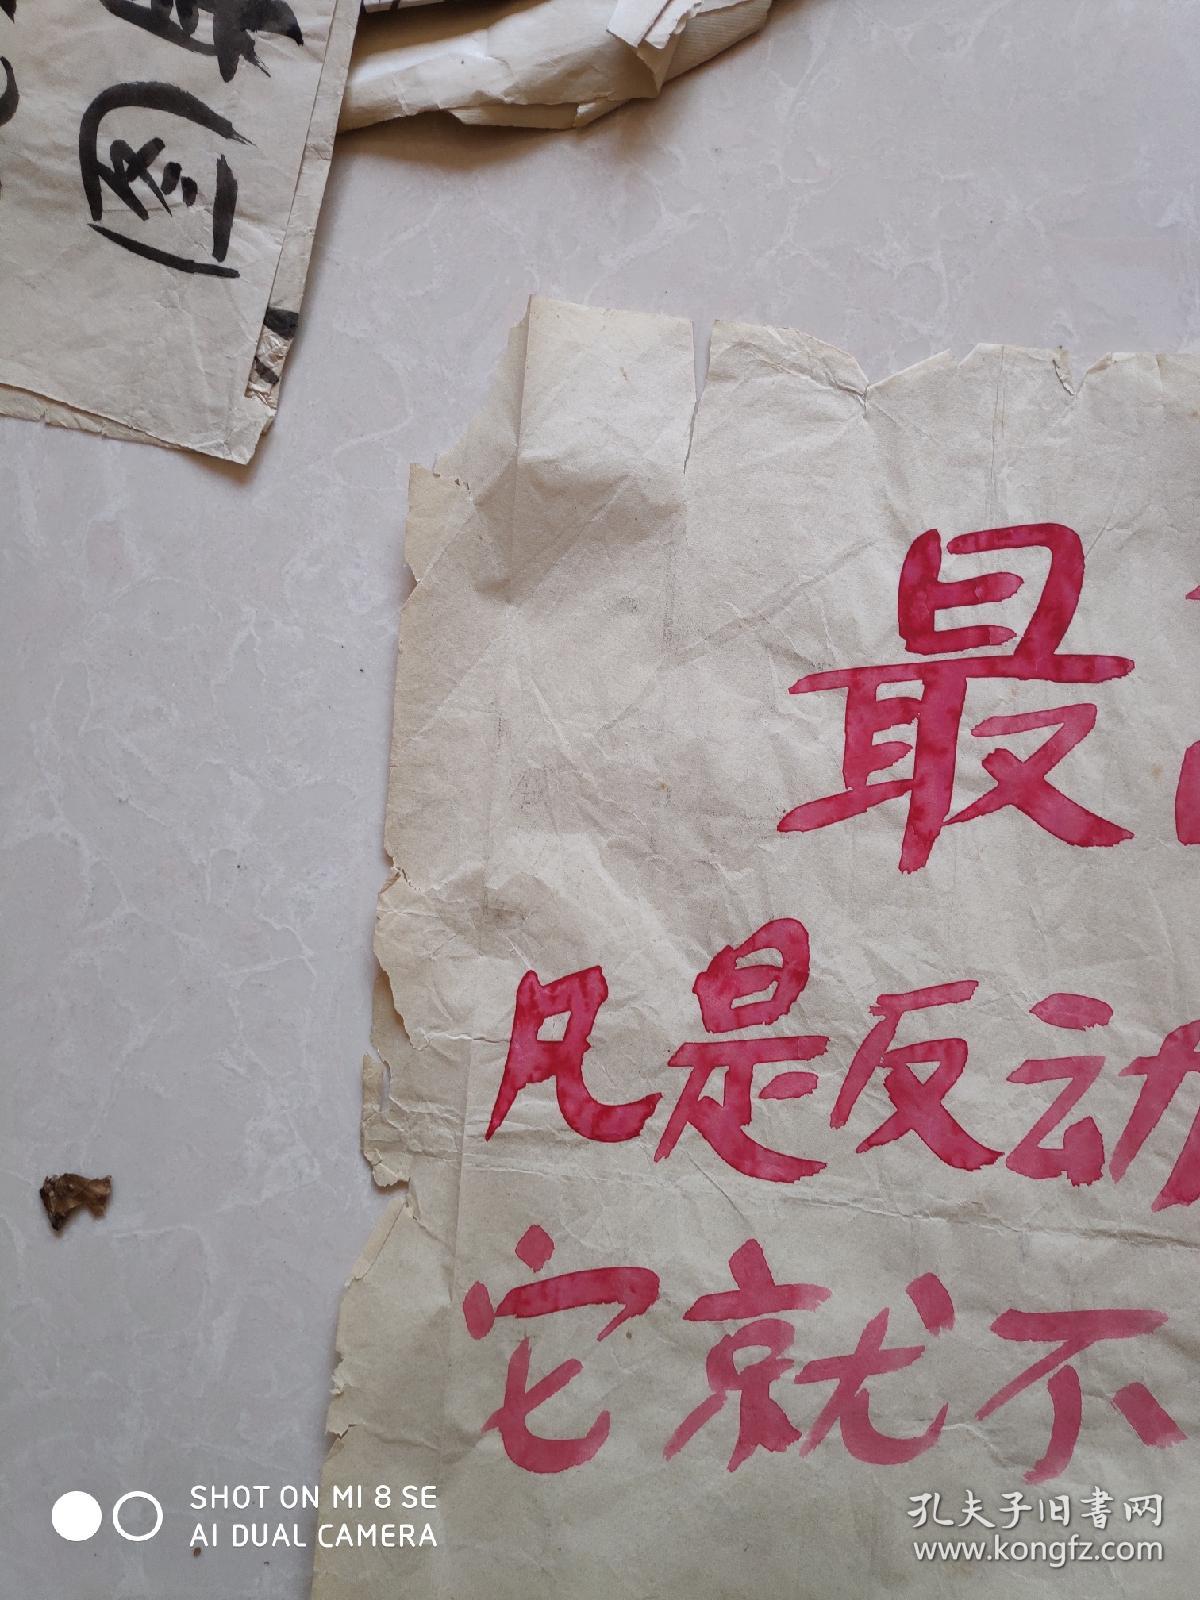 图
最
凡是反动
它就不
SHOT ON MI 8 SE
AI DUAL CAMERA
孔夫子旧书网
www.kongfz.com